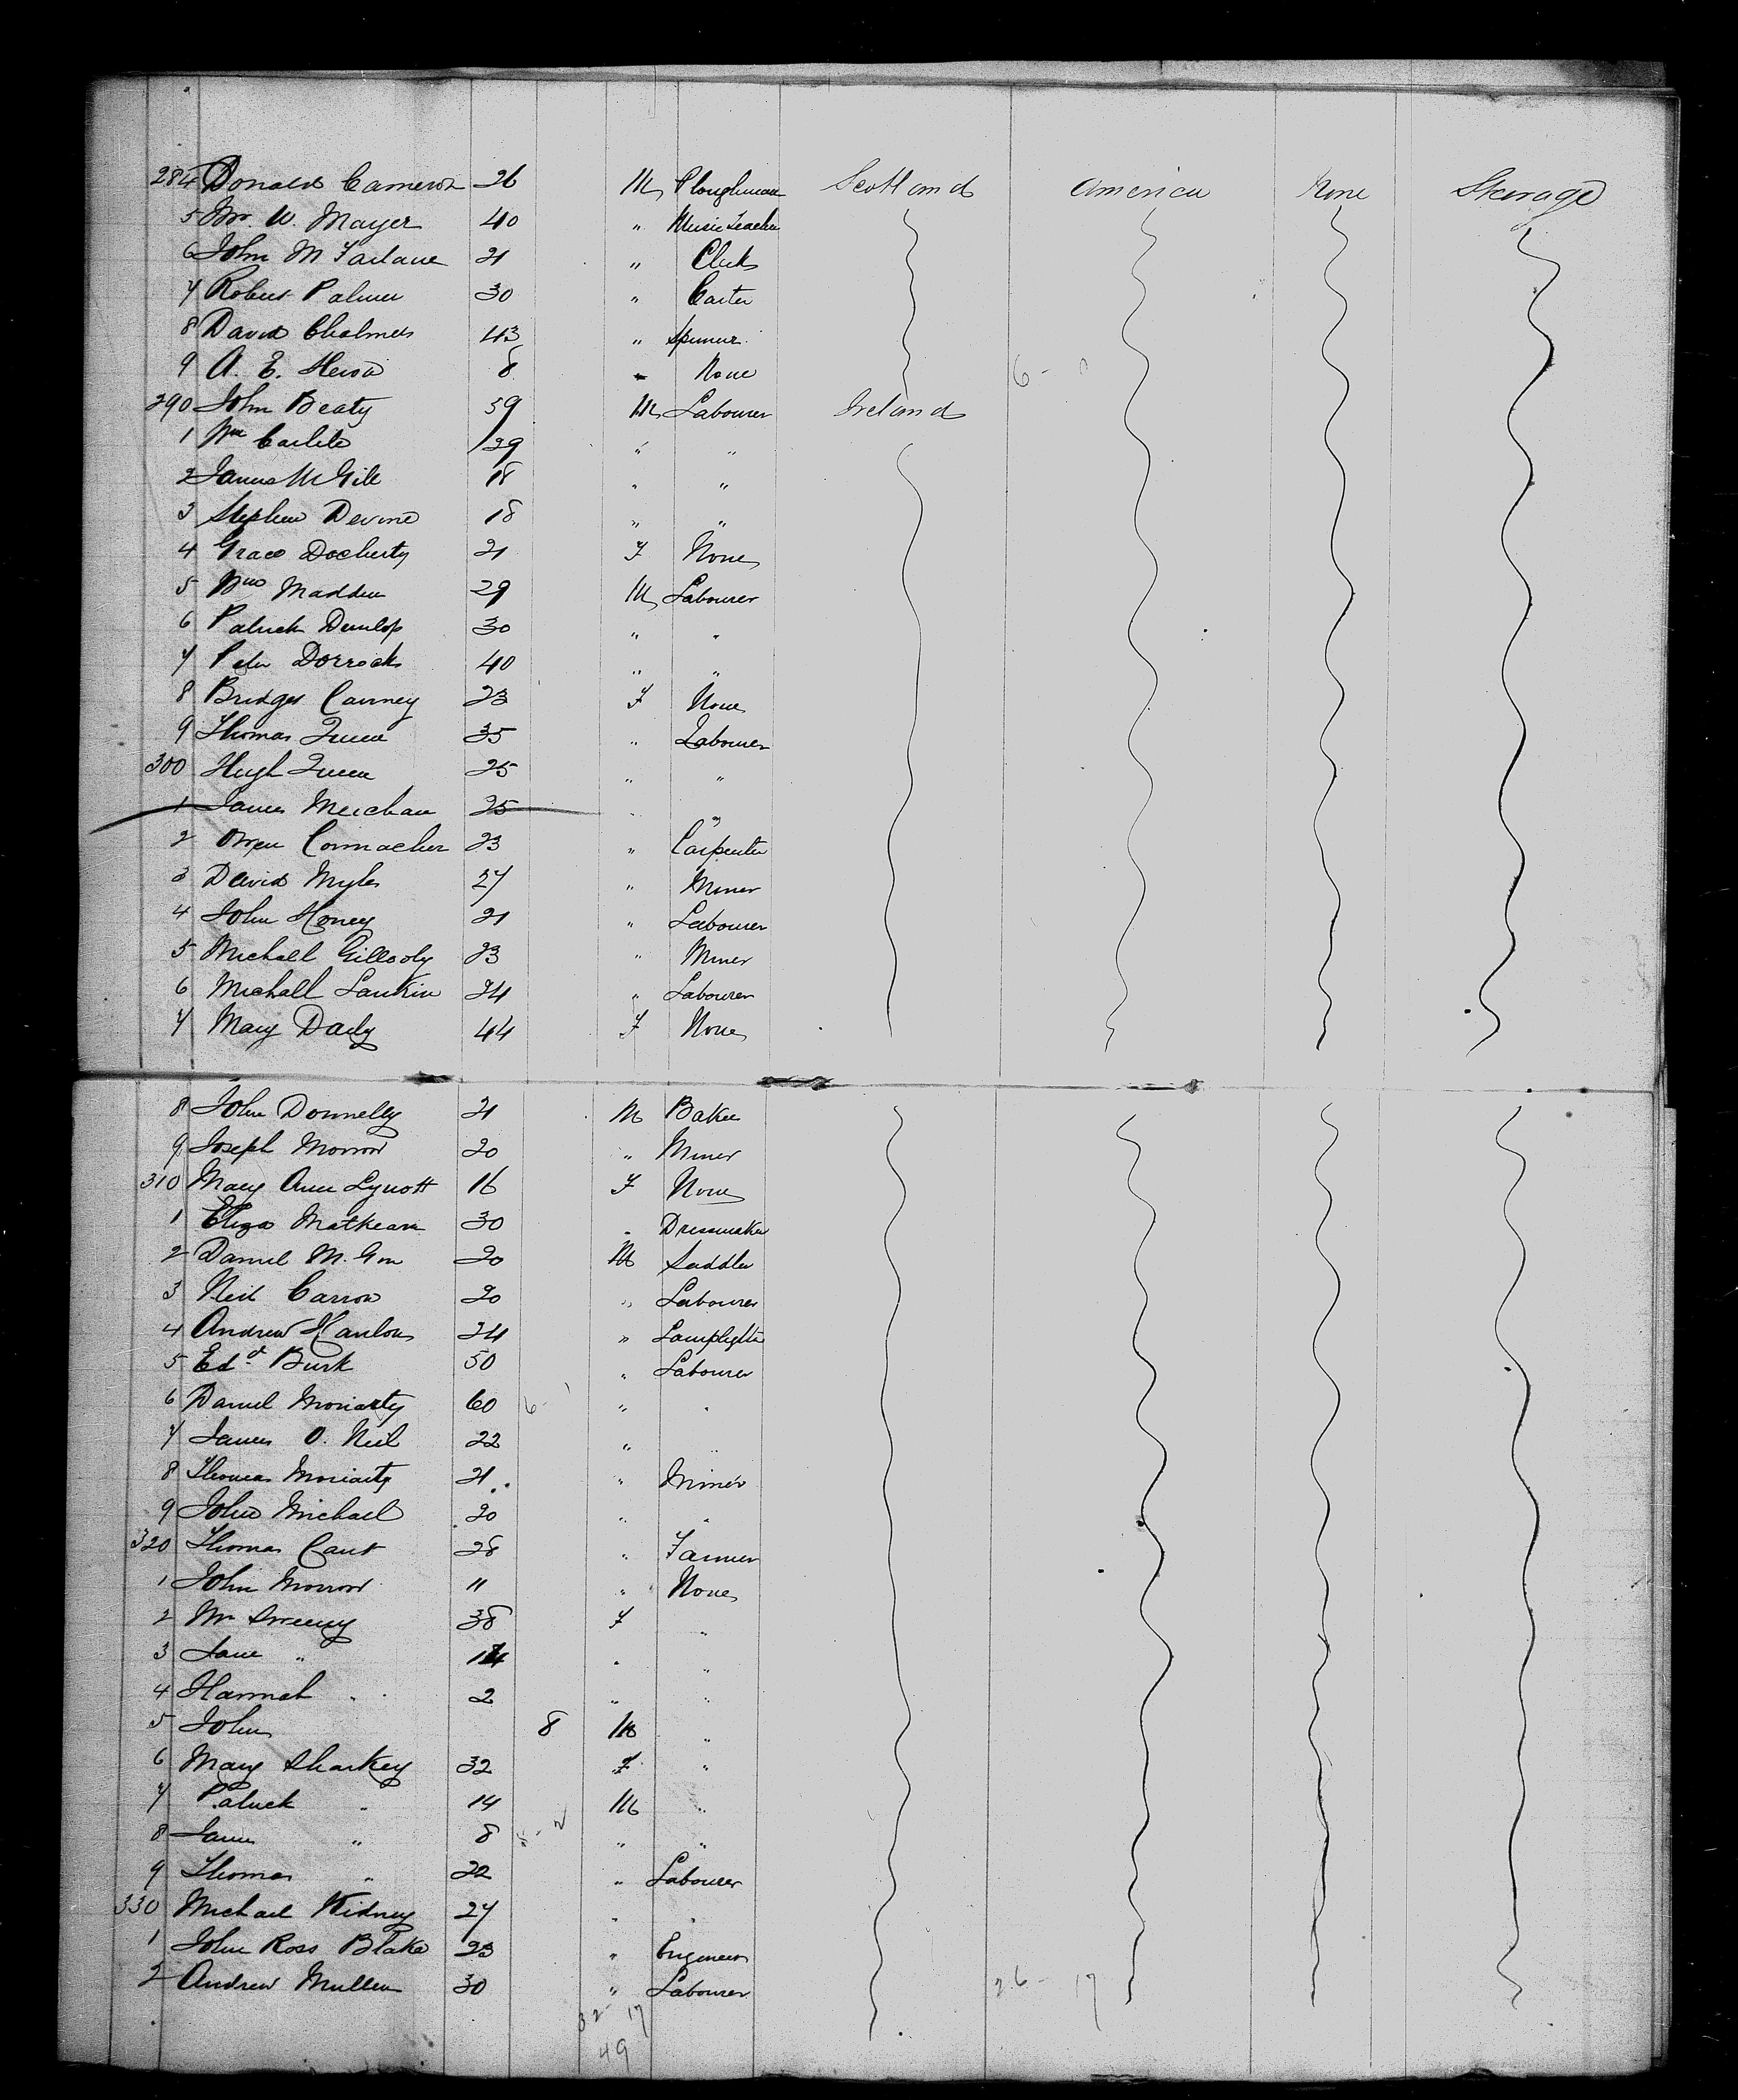 284 Donald Cameron 26 M Ploughman Scotland America None Steerage
5 Mr. W. Mayer 40 " Music Teacher
6 John McFarlane 21 " Clerk
7 Robert Palmer 30 " Carter
8 David Chalmers 43 " Spinner
9 A. E. 8 " None 6 - 0
290 John Beaty 59 M Labourer Ireland
1 Wm Carlile 29 " "
2 James McGill 18 " "
3 Stephen Devine 18 " "
4 Grace Docherty 21 F None
5 Wm Madden 29 M Labourer
6 Patrick Dunlop 30 " "
7 Peter Dorrock 40 " "
8 Bridget Canney 23 F None
9 Thomas Queen 35 " Labourer
300 Hugh Queen 25 " "
1 James Meichan 25 " "
2 Owen Connacher 23 " Carpenter
3 David Myles 27 " Miner
4 John Honey 21 " Labourer
5 Michall Gillooly 23 " Miner
6 Michall Lankin 24 " Labourer
7 Mary Daily 44 F None
8 John Donnelly 21 M Baker
9 Joseph Morrow 20 " Miner
310 Mary Ann Lynott 16 F None
1 Eliza Mathean 30 " Dressmaker
2 Daniel 20 M Saddler
3 Neil Carron 20 " Labourer
4 Andrew Hanlon 24 " Lamplighter
5 Edd Burk 50 " Labourer
6 Daniel Moriarty 60 6 - 1 " "
7 James O. Neil 22 " "
8 Thomas Moriarty 21 " Miner
9 John Michael 20 " "
320 Thomas Cant 28 " Farmer
1 John Morrow 11 " None
2 Mr Sweeny 38 F "
3 Jane " " "
4 Hannah " 2 " "
5 John 8 M "
6 Mary Sharkey 32 F "
7 Patrick " 14 M "
8 James " 8 " "
9 Thomas " 22 " Labourer
330 Michael Kidney 27 " "
1 John Ross Blake 23 " Engineer
2 Andrew Mullen 30 " Labourer 26 - 17
32 - 17
49